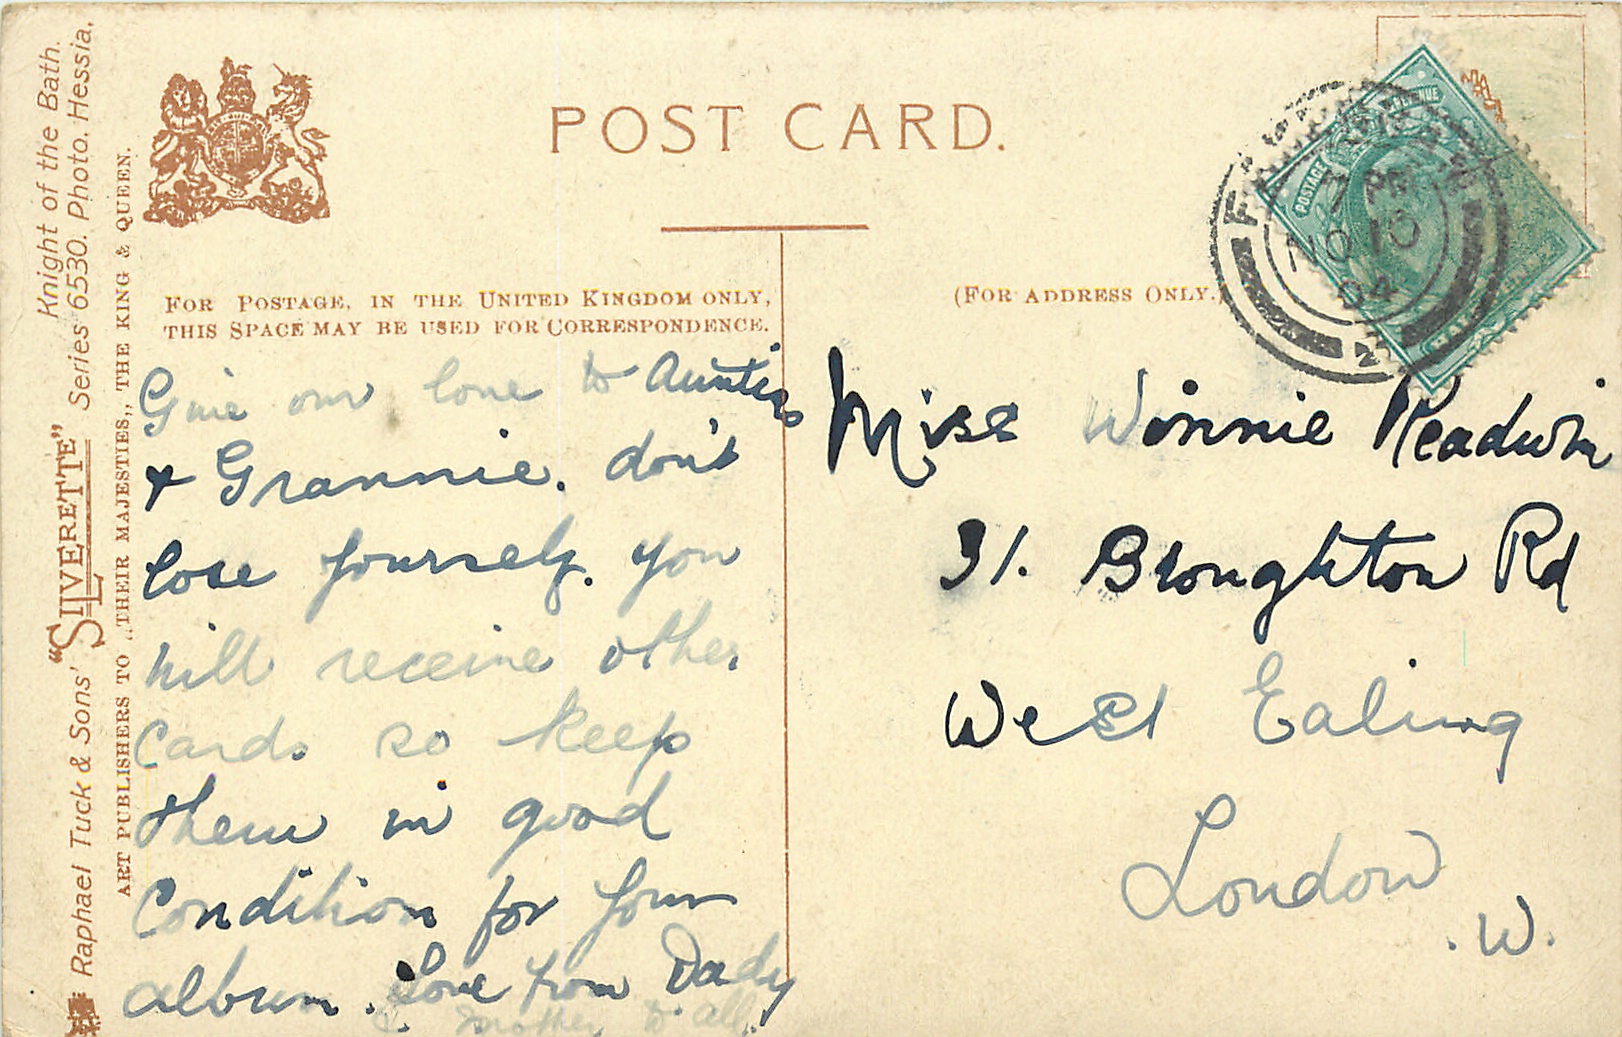 Knight of the Bath.
Raphael Tuck & Sons' "SILVERETTE" Series 6530. Photo. Hessia.
ART PUBLISHERS TO „THEIR MAJESTIES„ THE KING & QUEEN.
POST CARD.
FOR POSTAGE, IN THE UNITED KINGDOM ONLY,
THIS SPACE MAY BE USED FOR CORRESPONDENCE.
(FOR ADDRESS ONLY.)
POSTAGE REVENUE
7 PM
NO 10
04
Give our love to Aunties
& Grannie. don't
lose yourself. You
will receive other
cards so keep
them in good
Condition for your
album. Love from Dady
& mother to all.
Miss Winnie Readwin
31. Broughton Rd
West Ealing
London
. W.